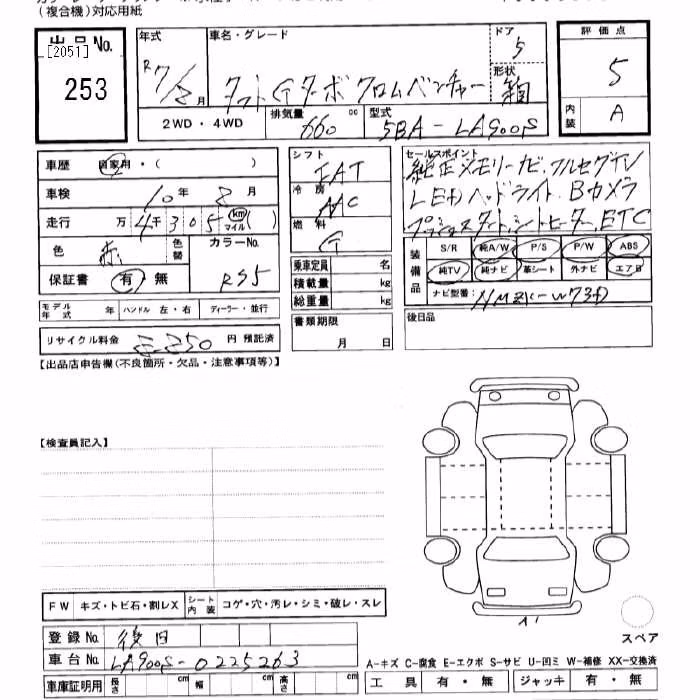 (複合機)対応用紙
出品No.
[2051]
253
年式
R7/2月
車名・グレード
タフト Gターボ クロムベンチャー
ドア
5
形状
箱
評価点
5
内装
A
2WD・4WD
排気量
660 cc
型式
5BA-LA900S
車歴 自家用・( )
車検 10年2月
走行 万4千305 (km マイル)( )
色 赤 色替
カラーNo. R55
保証書 有・無
モデル年式 年 ハンドル 左・右 ディーラー・並行
リサイクル料金 円 預託済
シフト
FAT
冷房
A/C
燃料
G
乗車定員 名
積載量 kg
総重量 kg
書類期限
月 日
セールスポイント
純正メモリーナビ、フルセグTV
LEDヘッドライト、Bカメラ
プッシュスタート、シートヒーター、ETC
装備品
S/R 純A/W P/S P/W ABS
純TV 純ナビ 革シート 外ナビ エアB
ナビ型番: NMZK-W73D
後日品
【出品店申告欄(不良箇所・欠品・注意事項等)】
【検査員記入】
FW キズ・トビ石・割レX シート内装 コゲ・穴・汚レ・シミ・破レ・スレ
登録No. 後日
車台No. LA900S-0225263
車庫証明用 長さ cm 幅 cm 高さ cm
A1
スペア
A-キズ C-腐食 E-エクボ S-サビ U-凹ミ W-補修 XX-交換済
工具 有・無 ジャッキ 有・無